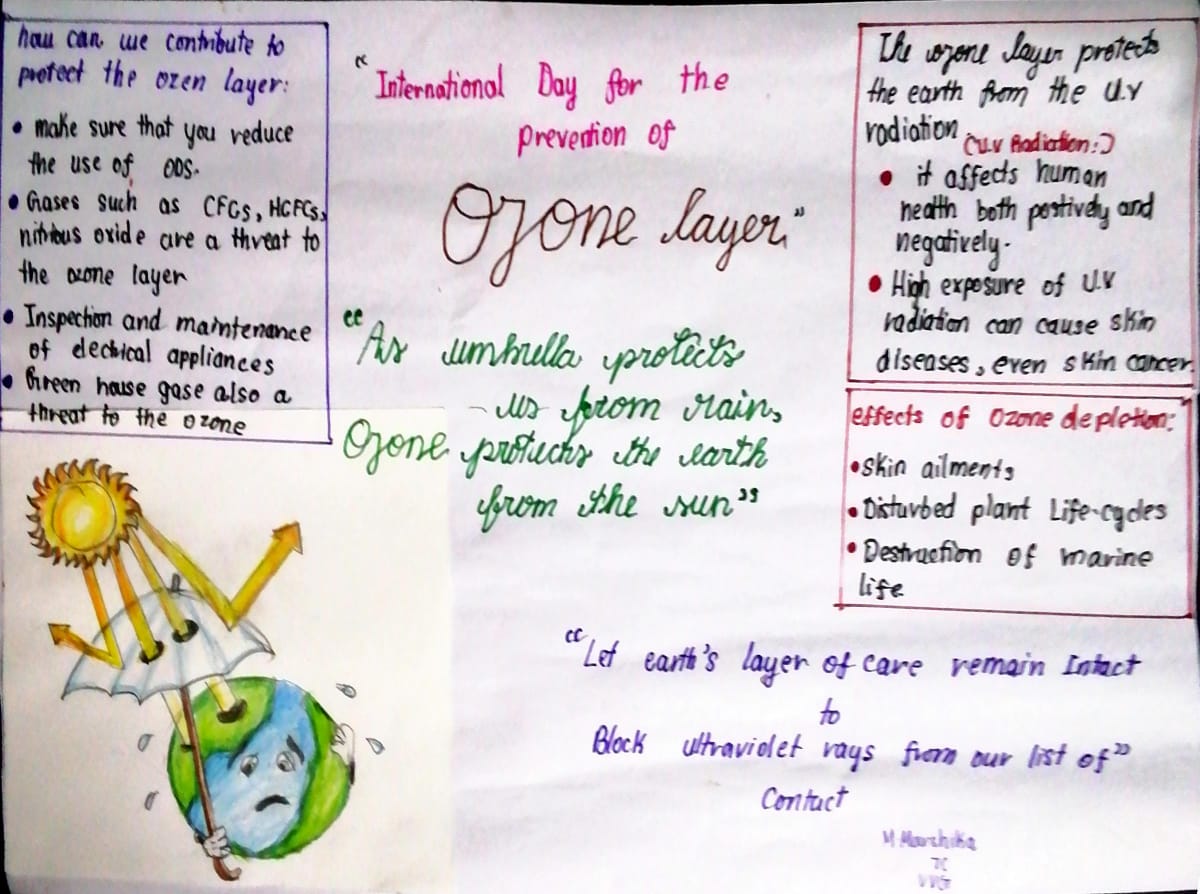 how can we contribute to
protect the ozen layer:
• make sure that you reduce
the use of ODS.
• Gases such as CFGs, HCFCs,
nitribus oxide are a threat to
the ozone layer
• Inspection and maintenance
of electrical appliances
• Green house gase also a
threat to the ozone
"International Day for the
prevention of
Ozone layer"
"As umbrella protects
us from rain,
Ozone protects the earth
from the sun"
The ozone layer protects
the earth from the U.V
radiation
(U.V Radiation:)
• it affects human
health both postively and
negatively.
• High exposure of U.V
radiation can cause skin
diseases, even skin cancer
effects of Ozone depletion:
• skin ailments
• Disturbed plant Life-cycles
• Destruction of marine
life
"Let earth's layer of care remain Intact
to
Block ultraviolet rays from our list of"
Contact
M Marchika